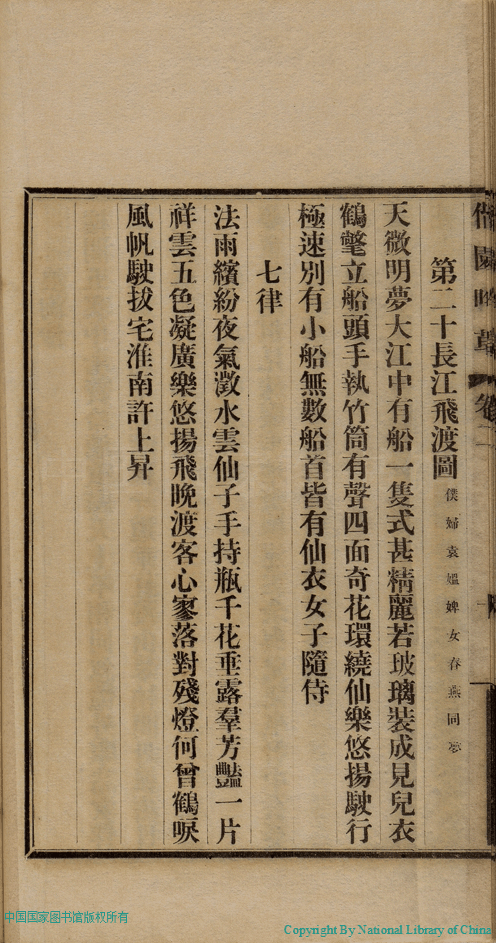 第二十長江飛渡圖 僕婦袁媼婢女春燕同夢
天微明夢大江中有船一隻式甚精麗若玻璃裝成見兒衣
鶴氅立船頭手執竹筒有聲四面奇花環繞仙樂悠揚駛行
極速別有小船無數船首皆有仙衣女子隨侍
七律
法雨繽紛夜氣澂水雲仙子手持瓶千花垂露羣芳豔一片
祥雲五色凝廣樂悠揚飛晚渡客心寥落對殘燈何曾鶴唳
風帆駛拔宅淮南許上昇
中国国家图书馆版权所有
Copyright By National Library of China